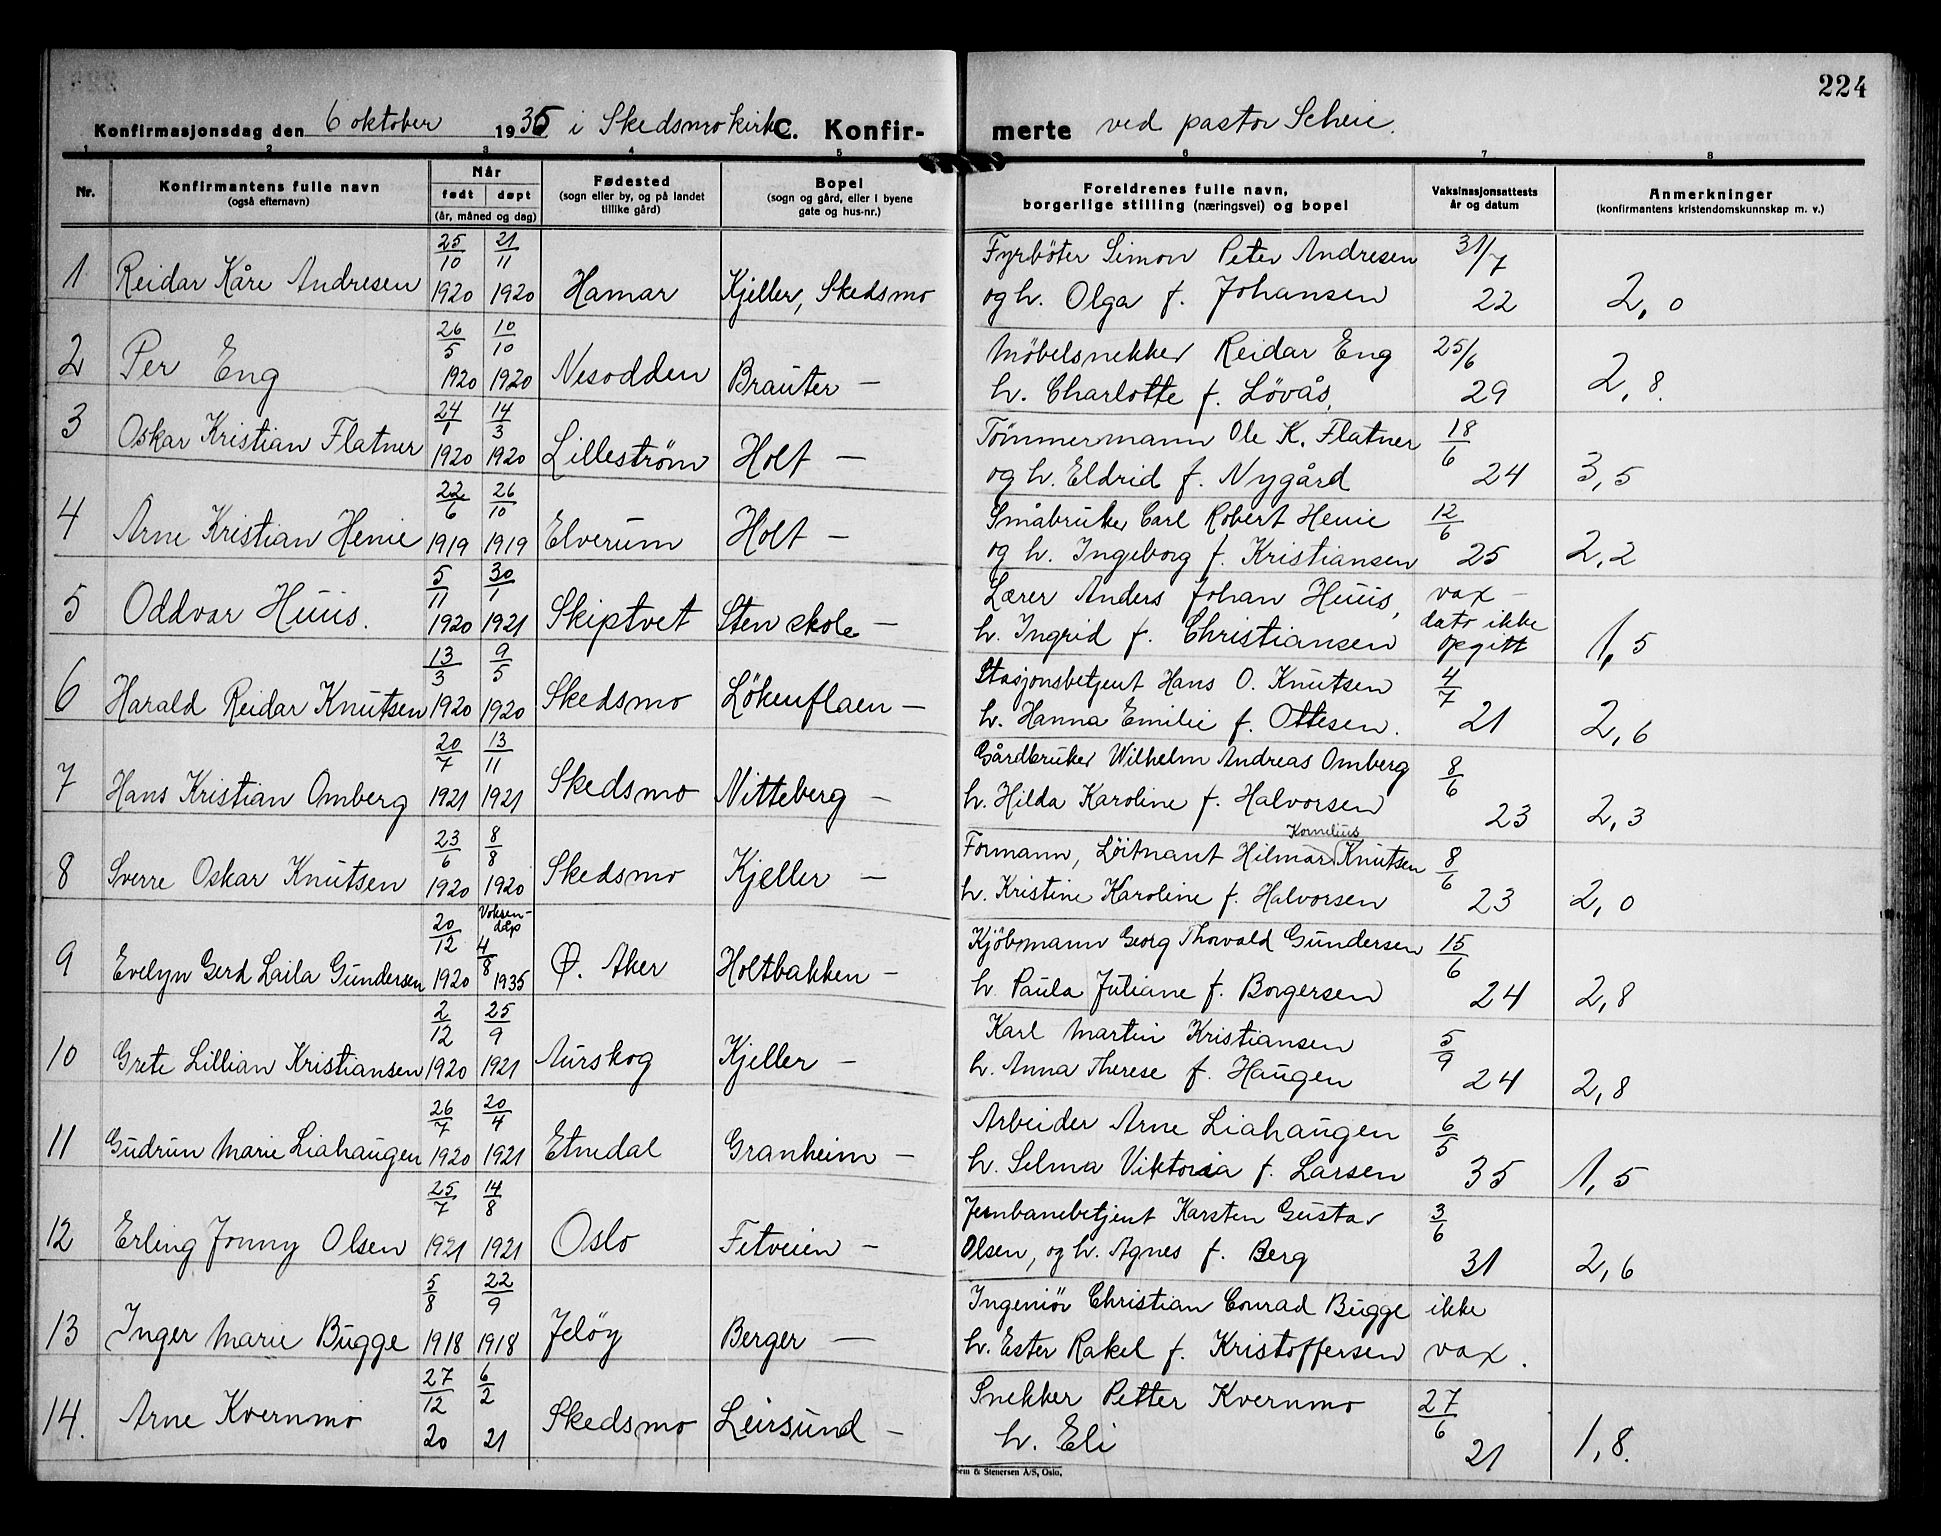 224
Konfirmasjonsdag den 6 oktober 1935 i Skedsmo kirke C. Konfirmerte ved pastor Scheie.
1 2 3 4 5 6 7 8
Nr. Konfirmantens fulle navn (også efternavn) Når født døpt (år, måned og dag) Fødested (sogn eller by, og på landet tillike gård) Bopel (sogn og gård, eller i byene gate og hus-nr.) Foreldrenes fulle navn, borgerlige stilling (næringsvei) og bopel Vaksinasjonsattests år og datum Anmerkninger (konfirmantens kristendomskunnskap m. v.)
1 Reidar Kåre Andresen 25/10 1920 21/11 1920 Hamar Kjeller, Skedsmo Fyrböter Simon Peter Andresen 31/7
og h. Olga f. Johansen 22 2,0
2 Per Eng 26/5 1920 10/10 1920 Nesodden Brauter — Möbelsnekker Reidar Eng 25/6
h. Charlotte f. Lövås, 29 2,8.
3 Oskar Kristian Flatner 24/1 1920 14/3 1920 Lilleström Holt — Tömmermann Ole K. Flatner 18/6
og h. Eldrid f. Nygård 24 3,5
4 Arne Kristian Henie 22/6 1919 26/10 1919 Elverum Holt — Småbruker Carl Robert Henie 12/6
og h. Ingeborg f. Kristiansen 25 2,2
5 Oddvar Huus. 5/11 1920 30/1 1921 Skiptvet Sten skole — Lærer Anders Johan Huus, vax —
h. Ingrid f. Christiansen dato ikke opgitt 1,5
6 Harald Reidar Knutsen 13/3 1920 9/5 1920 Skedsmo Lökenflaen — Stasjonsbetjent Hans O. Knutsen 4/7
h. Hanna Emilie f. Ottesen. 21 2,6
7 Hans Kristian Omberg 20/7 1921 13/11 1921 Skedsmo Nitteberg — Gårdbruker Wilhelm Andreas Omberg 8/6
h. Hilda Karoline f. Halvorsen 23 2,3
8 Sverre Oskar Knutsen 23/6 1920 8/8 1920 Skedsmo Kjeller — Formann, Löitnant Hilmar Kornelius Knutsen 8/6
h. Kristine Karoline f. Halvorsen 23 2,0
9 Evelyn Gerd Laila Gundersen 20/12 1920 Voksen-dåp 4/8 1935 Ø. Aker Holtbakken — Kjöbmann Georg Thorvald Gundersen 15/6
h. Paula Juliane f. Borgersen 24 2,8
10 Grete Lillian Kristiansen 2/12 1920 25/9 1921 Aurskog Kjeller — Karl Martin Kristiansen 5/9
h. Anna Therese f. Haugen 24 2,8
11 Gudrun Marie Liahaugen 26/7 1920 20/4 1921 Etnedal Granheim — Arbeider Arne Liahaugen 6/5
h. Selma Viktoria f. Larsen 35 1,5
12 Erling Jonny Olsen 25/7 1921 14/8 1921 Oslo Fetveien — Jernbanebetjent Karsten Gustav 3/6
Olsen, og h. Agnes f. Berg 31 2,6
13 Inger Marie Bugge 5/8 1918 22/9 1918 Jelöy Berger — Ingeniör Christian Conrad Bugge ikke
h. Ester Rakel f. Kristoffersen vax.
14. Arne Kvernmo 27/12 20 6/2 21 Skedsmo Leirsund — Snekker Petter Kvernmo 27/6
h. Eli 21 1,8.
& Stenersen A/S, Oslo.